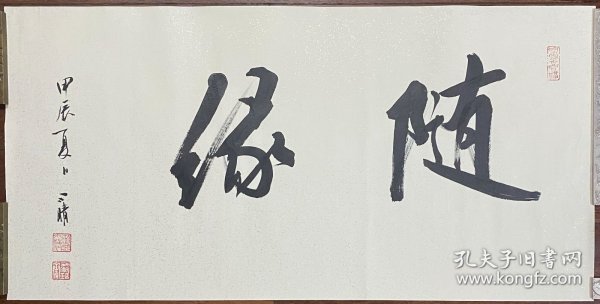 随缘
甲辰夏日一晴
孔夫子旧书网
www.kongfz.com